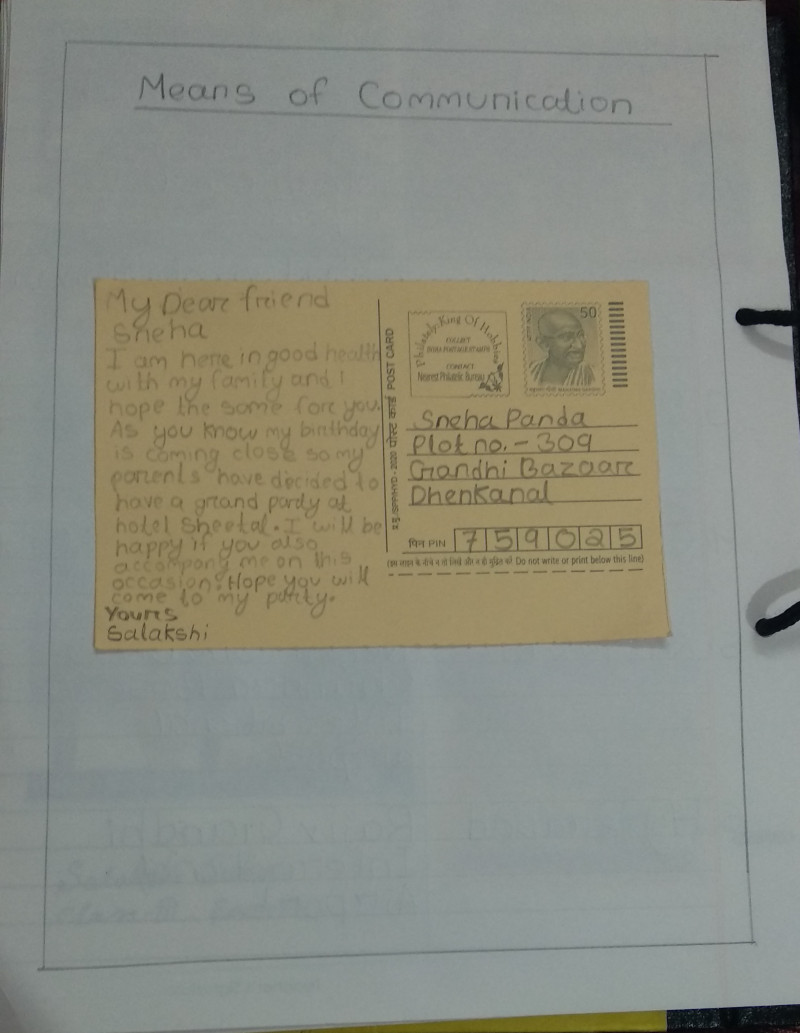 Means of Communication
My Dear friend
Sneha
I am here in good health
with my family and I
hope the same for you.
As you know my birthday
is coming close so my
parents have decided to
have a grand party at
hotel Sheetal. I will be
happy if you also
accompany me on this
occasion. Hope you will
come to my party.
Yours
Salakshi
पोस्ट कार्ड POST CARD
Philately: King Of Hobbies
COLLECT
INDIA POSTAGE STAMPS
CONTACT
Nearest Philatelic Bureau
50
Sneha Panda
Plot no. - 309
Gandhi Bazaar
Dhenkanal
पिन PIN 759025
(इस लाइन के नीचे न तो लिखें और न ही मुद्रित करें Do not write or print below this line)